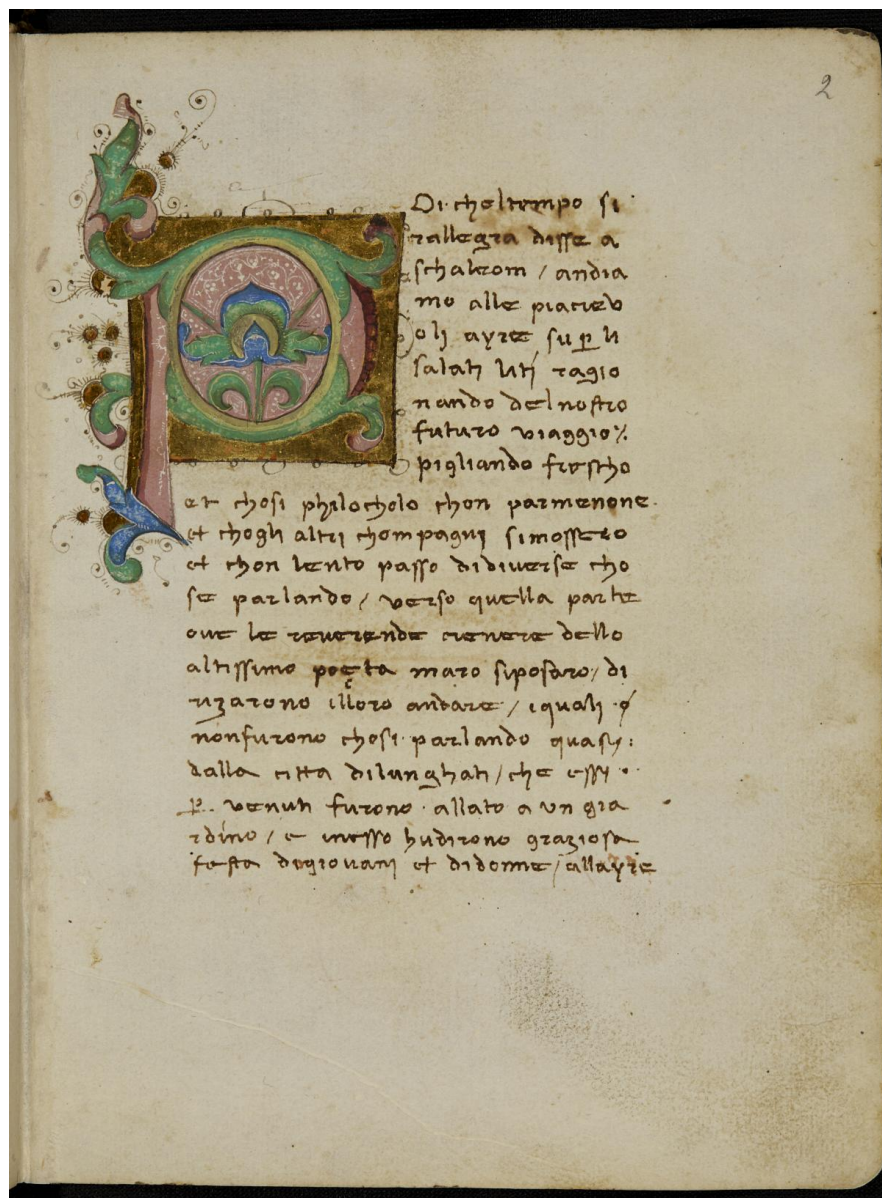 2
POi cheltempo si
rallegra disse a
schaleom / andia
mo alle piacieu
oli ayre su p̱ li
salati liti ragio
nando delnostro
futuro viaggio
pigliando frescho
et chosi philocholo chon parmenone
et chogli altri chompagni simossero
et chon lento passo didiuerse cho
se parlando / verso quella parte
oue le reuerende cienere dello
altissimo poęta maro siposaro / di
rizarono illoro andare / iquali
nonfurono chosi parlando quasi
dalla citta dilunghati / che essi
p̱ venuti furono · allato a vn gia
rdino / e inesso hudirono graziosa
festa degiouani et didonne / allayre